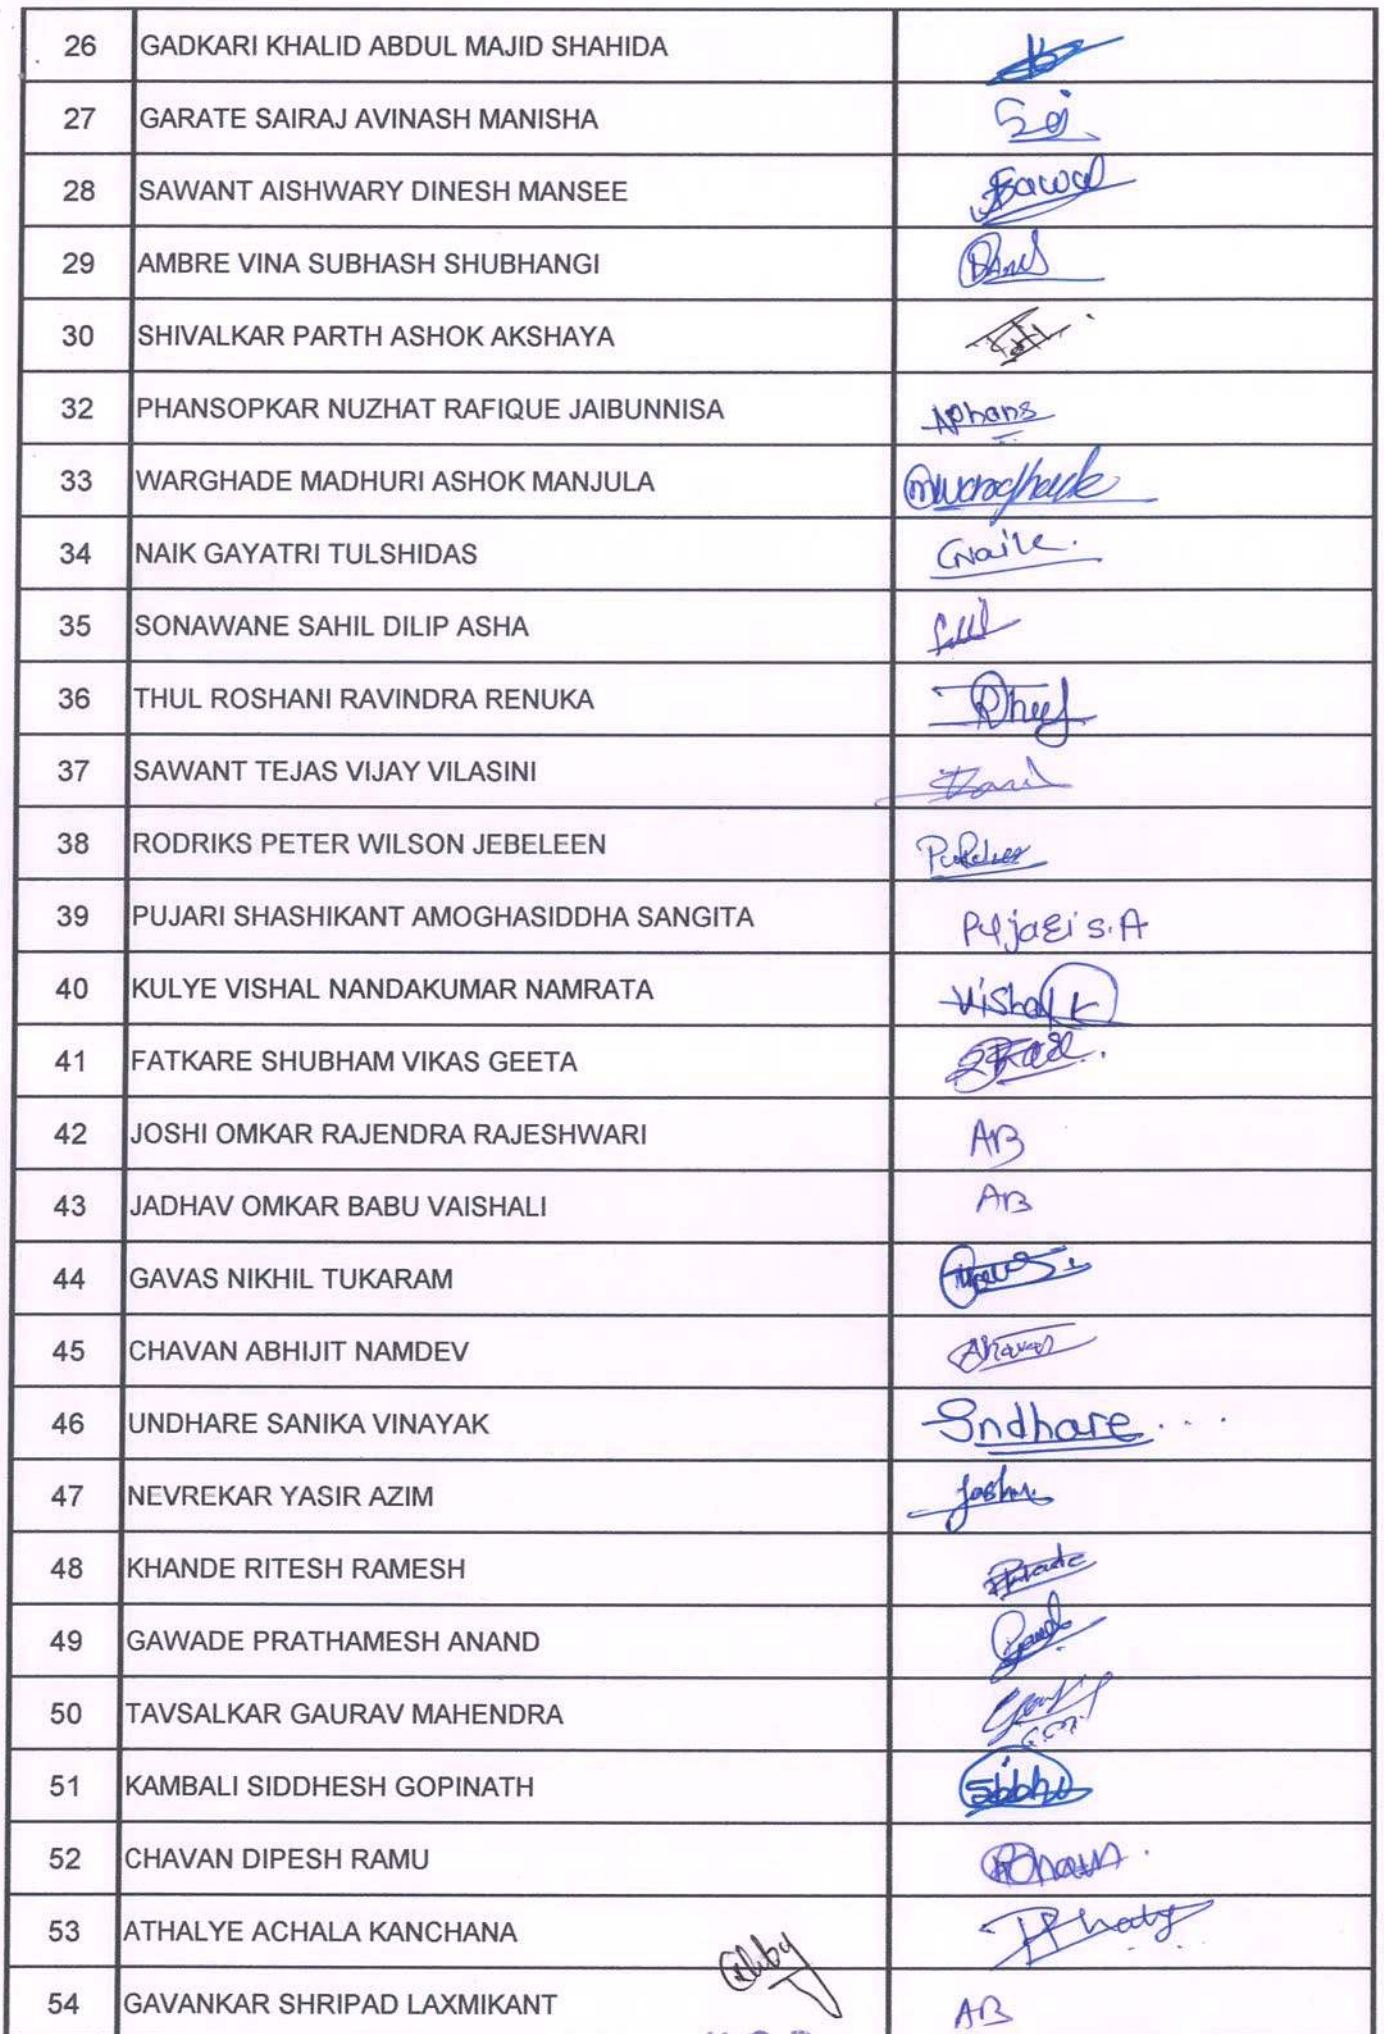 26 GADKARI KHALID ABDUL MAJID SHAHIDA
27 GARATE SAIRAJ AVINASH MANISHA
28 SAWANT AISHWARY DINESH MANSEE
29 AMBRE VINA SUBHASH SHUBHANGI
30 SHIVALKAR PARTH ASHOK AKSHAYA
32 PHANSOPKAR NUZHAT RAFIQUE JAIBUNNISA NPhans
33 WARGHADE MADHURI ASHOK MANJULA
34 NAIK GAYATRI TULSHIDAS GNaik.
35 SONAWANE SAHIL DILIP ASHA
36 THUL ROSHANI RAVINDRA RENUKA
37 SAWANT TEJAS VIJAY VILASINI
38 RODRIKS PETER WILSON JEBELEEN
39 PUJARI SHASHIKANT AMOGHASIDDHA SANGITA Pujari S.A
40 KULYE VISHAL NANDAKUMAR NAMRATA Vishal K
41 FATKARE SHUBHAM VIKAS GEETA
42 JOSHI OMKAR RAJENDRA RAJESHWARI AB
43 JADHAV OMKAR BABU VAISHALI AB
44 GAVAS NIKHIL TUKARAM
45 CHAVAN ABHIJIT NAMDEV
46 UNDHARE SANIKA VINAYAK Sndhare
47 NEVREKAR YASIR AZIM
48 KHANDE RITESH RAMESH
49 GAWADE PRATHAMESH ANAND
50 TAVSALKAR GAURAV MAHENDRA
51 KAMBALI SIDDHESH GOPINATH
52 CHAVAN DIPESH RAMU
53 ATHALYE ACHALA KANCHANA
54 GAVANKAR SHRIPAD LAXMIKANT AB